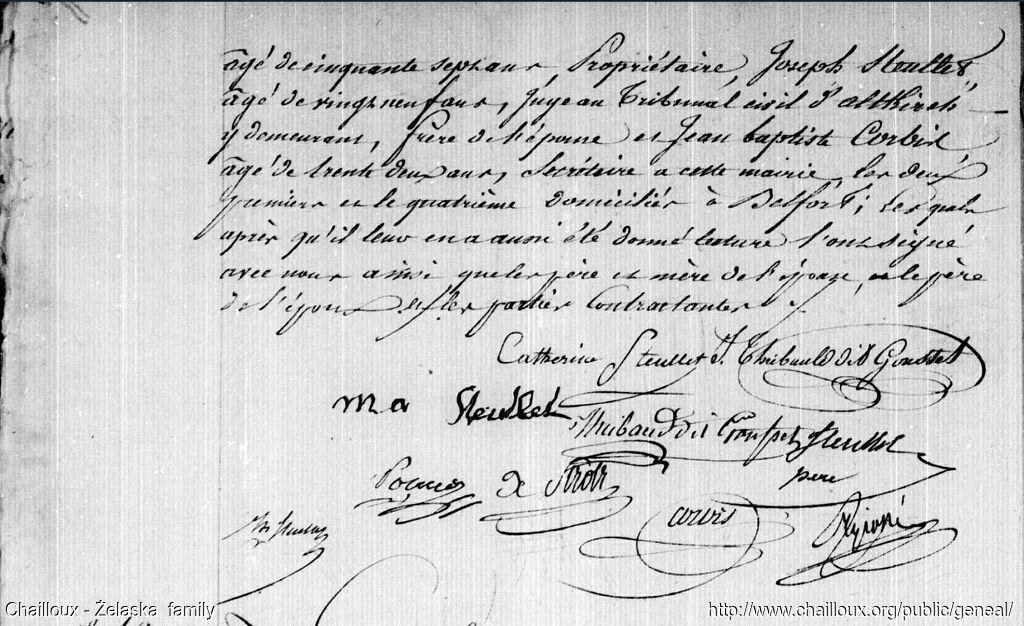 âgé de cinquante sept ans, Propriétaire, Joseph Steullet,
âgé de vingt neuf ans, Juge au Tribunal civil d'altkirch
y demeurant, frère de l'épouse et Jean baptiste Corbis
âgé de trente deux ans, Secrétaire a cette mairie, les deux
premiers et le quatrième domiciliés à Belfort; Lesquels
après qu'il leur en a aussi été donné lecture l'ont signé
avec nous ainsi que les père et mère de l'épouse, et le père
de l'époux et les parties Contractantes
Catherine Steullet J. Thiebauld dit Gousset
ma Steullet
Thiebaud dit Gousset Steullet
père
de
Corbis
Steullet
Chailloux - Żelaska family
http://www.chailloux.org/public/geneal/